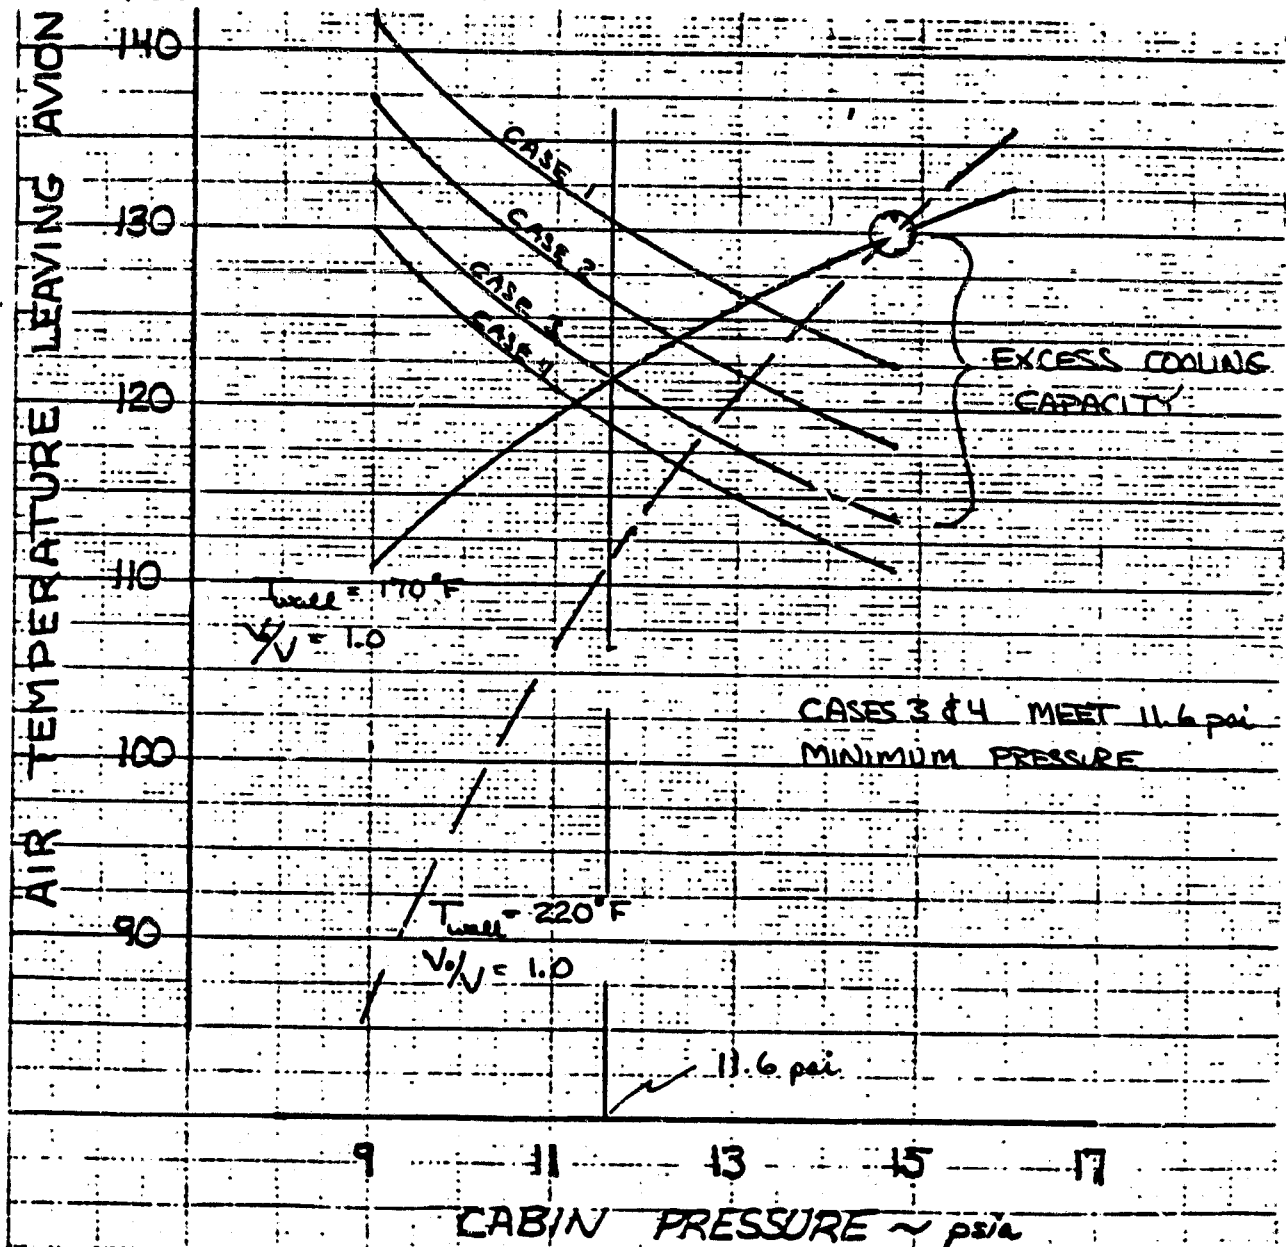 AIR TEMPERATURE LEAVING AVION
140
130
120
110
100
90
CASE 1
CASE 2
CASE 3
CASE 4
EXCESS COOLING
CAPACITY
Twall = 170°F
V₀/V = 1.0
CASES 3 & 4 MEET 11.6 psi
MINIMUM PRESSURE
Twall = 220°F
V₀/V = 1.0
11.6 psi
9 11 13 15 17
CABIN PRESSURE ~ psia